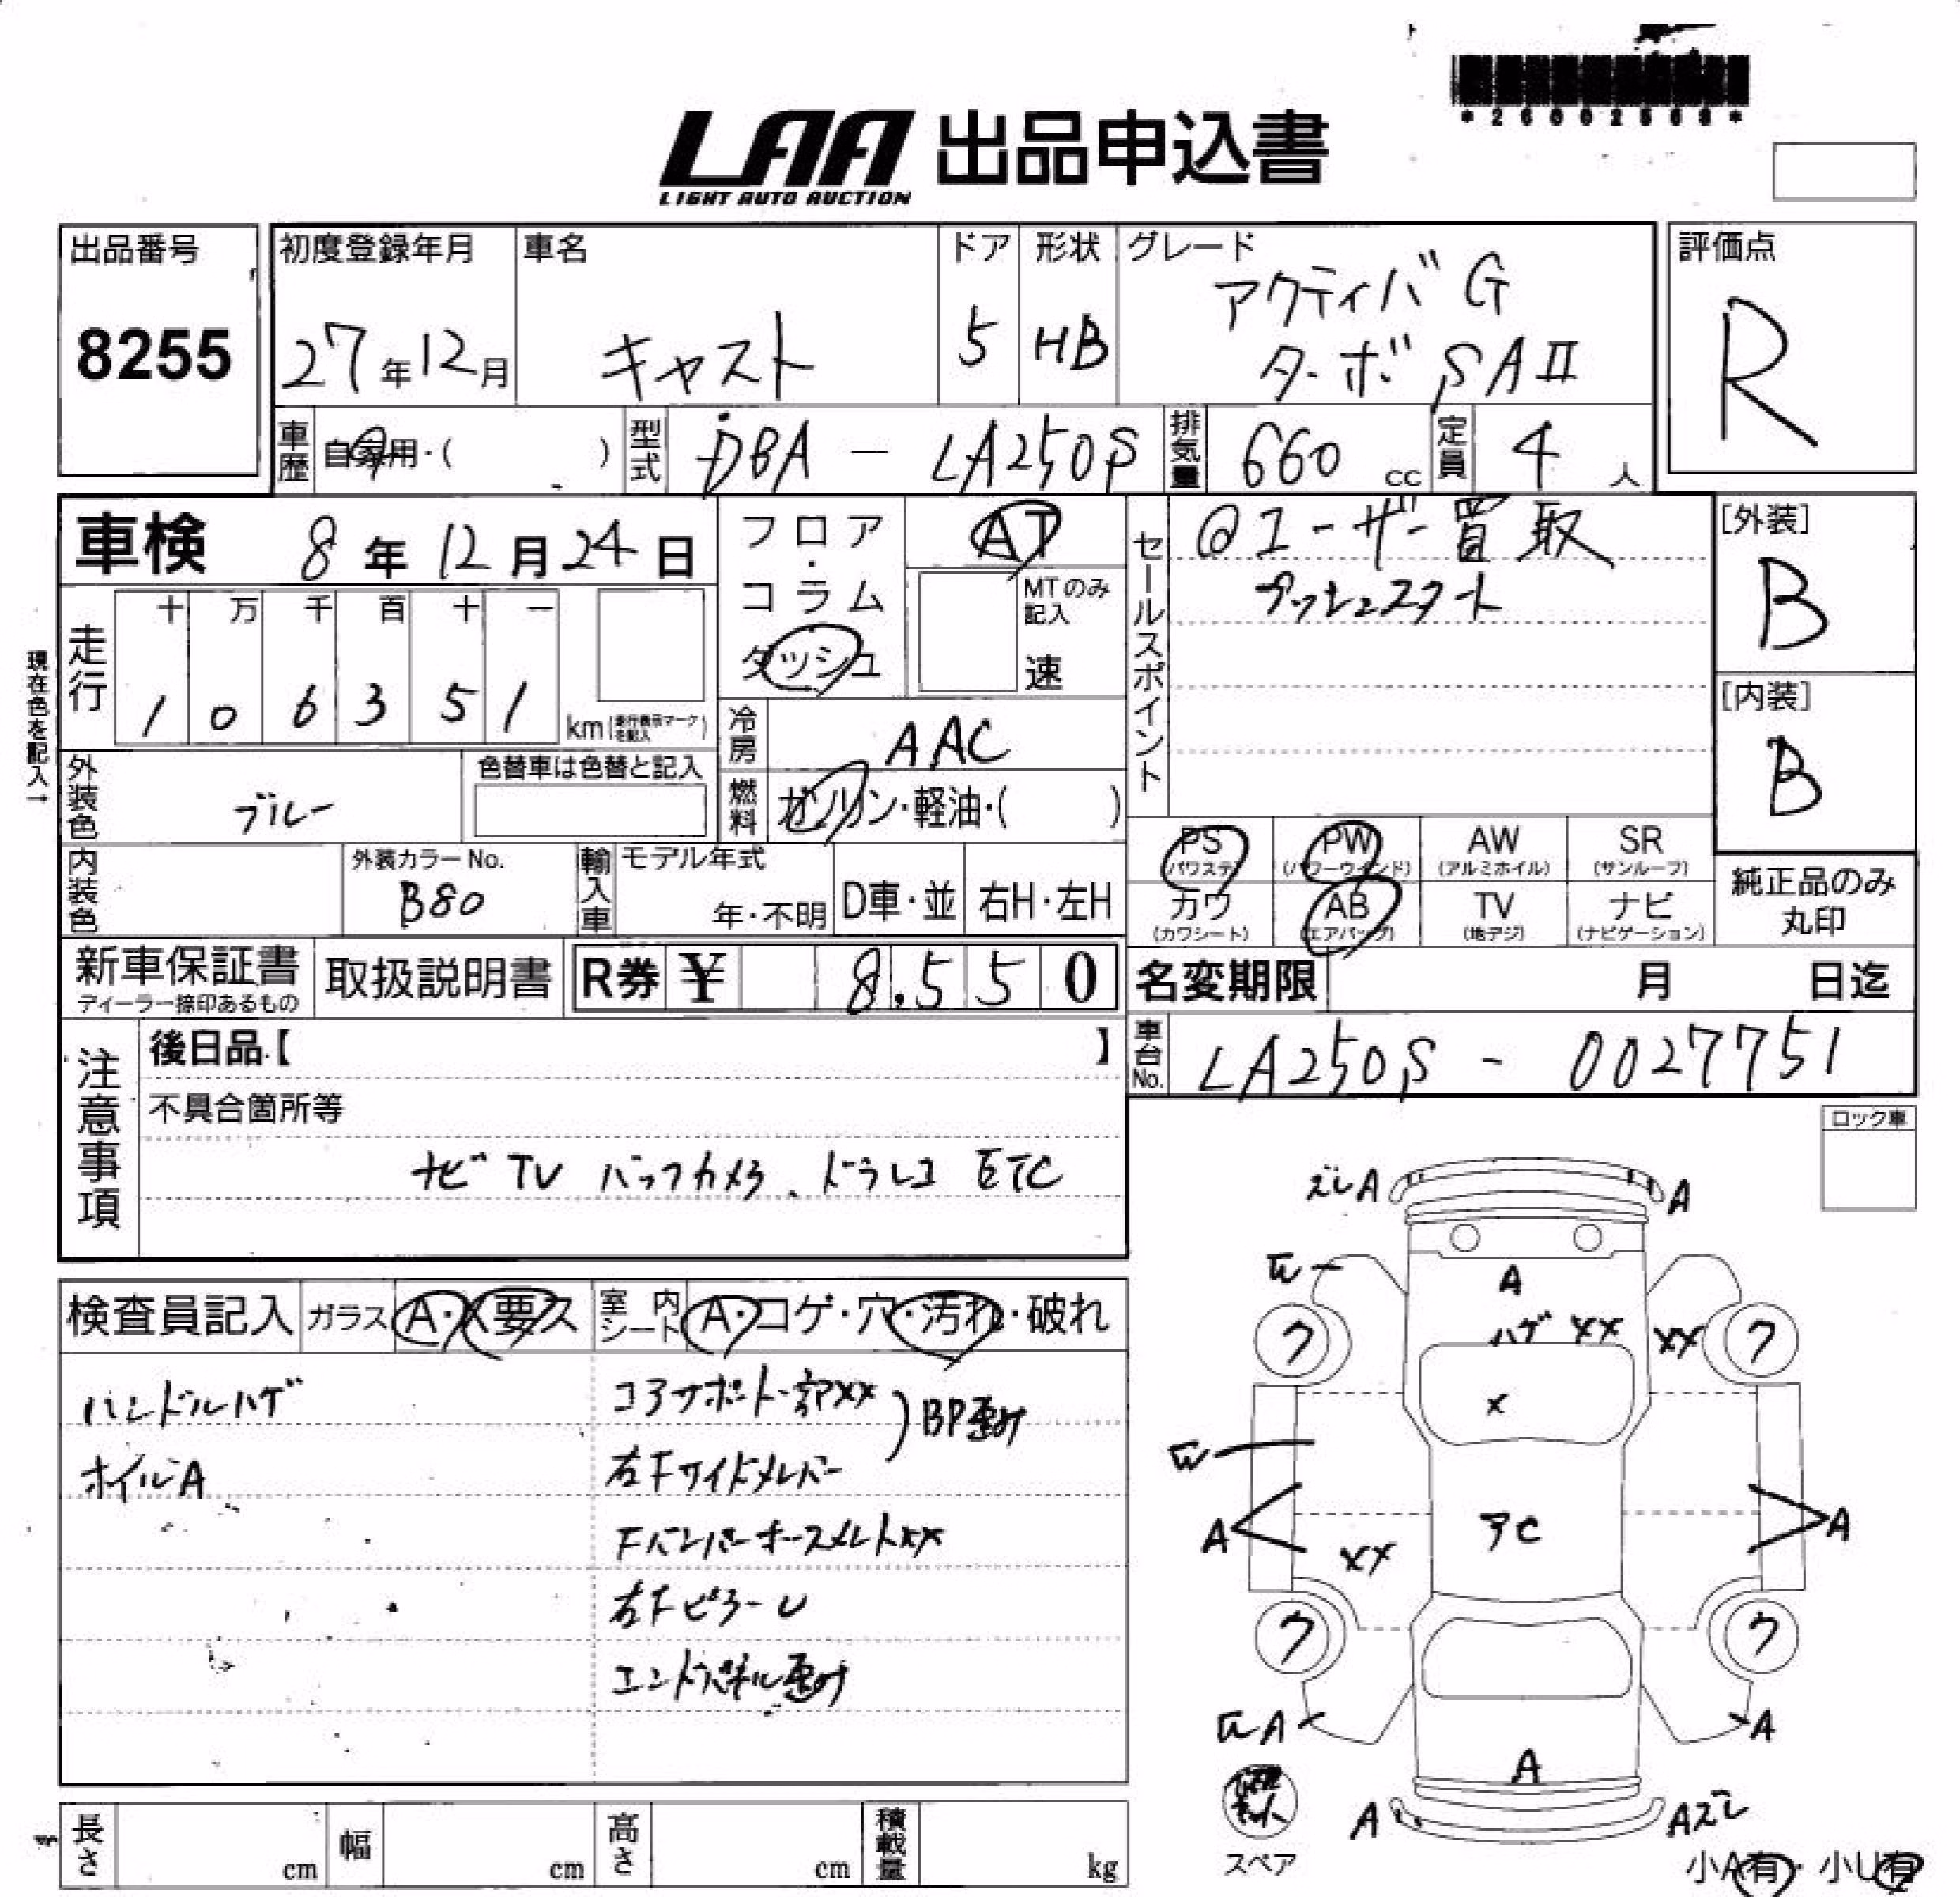 *26002568*
LAA 出品申込書
LIGHT AUTO AUCTION
出品番号 8255
初度登録年月 27年12月
車名 キャスト
ドア 5
形状 HB
グレード アクティバ G
ターボ SAⅡ
評価点 R
車歴 自家用・( )
型式 DBA - LA250S
排気量 660 cc
定員 4 人
車検 8年12月24日
フロア・コラム
ダッシュ
AT
MTのみ記入
速
セールスポイント
@ユーザー買取
プッシュスタート
[外装] B
[内装] B
現在色を記入→
走行 十 万 千 百 十 一
1 0 6 3 5 1 km (走行表示マークを記入)
冷房 AAC
外装色 ブルー
色替車は色替と記入
燃料 ガソリン・軽油・( )
内装色
外装カラーNo. B80
輸入車
モデル年式 年・不明
D車・並
右H・左H
PS (パワステ)
PW (パワーウインド)
AW (アルミホイル)
SR (サンルーフ)
カワ (カワシート)
AB (エアバッグ)
TV (地デジ)
ナビ (ナビゲーション)
純正品のみ丸印
新車保証書
ディーラー捺印あるもの
取扱説明書
R券 ¥ 8,550
名変期限 月 日迄
車台No. LA250S - 0027751
注意事項
後日品【 】
不具合箇所等
ナビ TV バックカメラ、ドラレコ ETC
ロック車
検査員記入
ガラス A・X要ス
室内シート A・コゲ・穴・汚れ・破れ
ハンドルハゲ
ホイルA
コアサポート部XX
右Fサイドメンバー
BP歪み
FバンパーホースメントXX
右FピラーU
エンドパネル歪み
ズレA A
A
ハゲ XX XX
ク ク
X
A アC A
XX
ク ク
A A
A
A Aズレ
スペア
小A有・小U有
長さ cm
幅 cm
高さ cm
積載量 kg